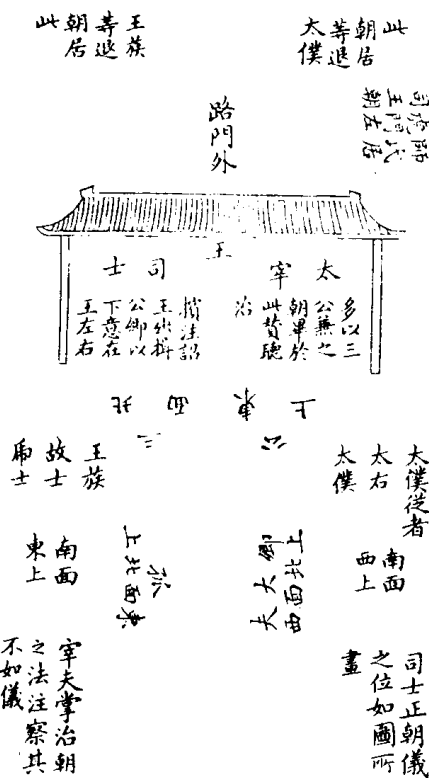 太僕
等退
朝居
此
王族
等退
朝居
此
師氏居
虎門左
司王朝
路門外
王
太宰
多以三
公兼之
朝畢於
此贊聽
治
司士
擯注詔
王出揖
公卿以
下意在
王左右
三公
北面東上
太僕從者
太右
太僕
南面
西上
王族
故士
虎士
南面
東上
卿大夫
西面北上
孤
東面北上
司士正朝儀
之位如圖所
畫
宰夫掌治朝
之法注察其
不如儀